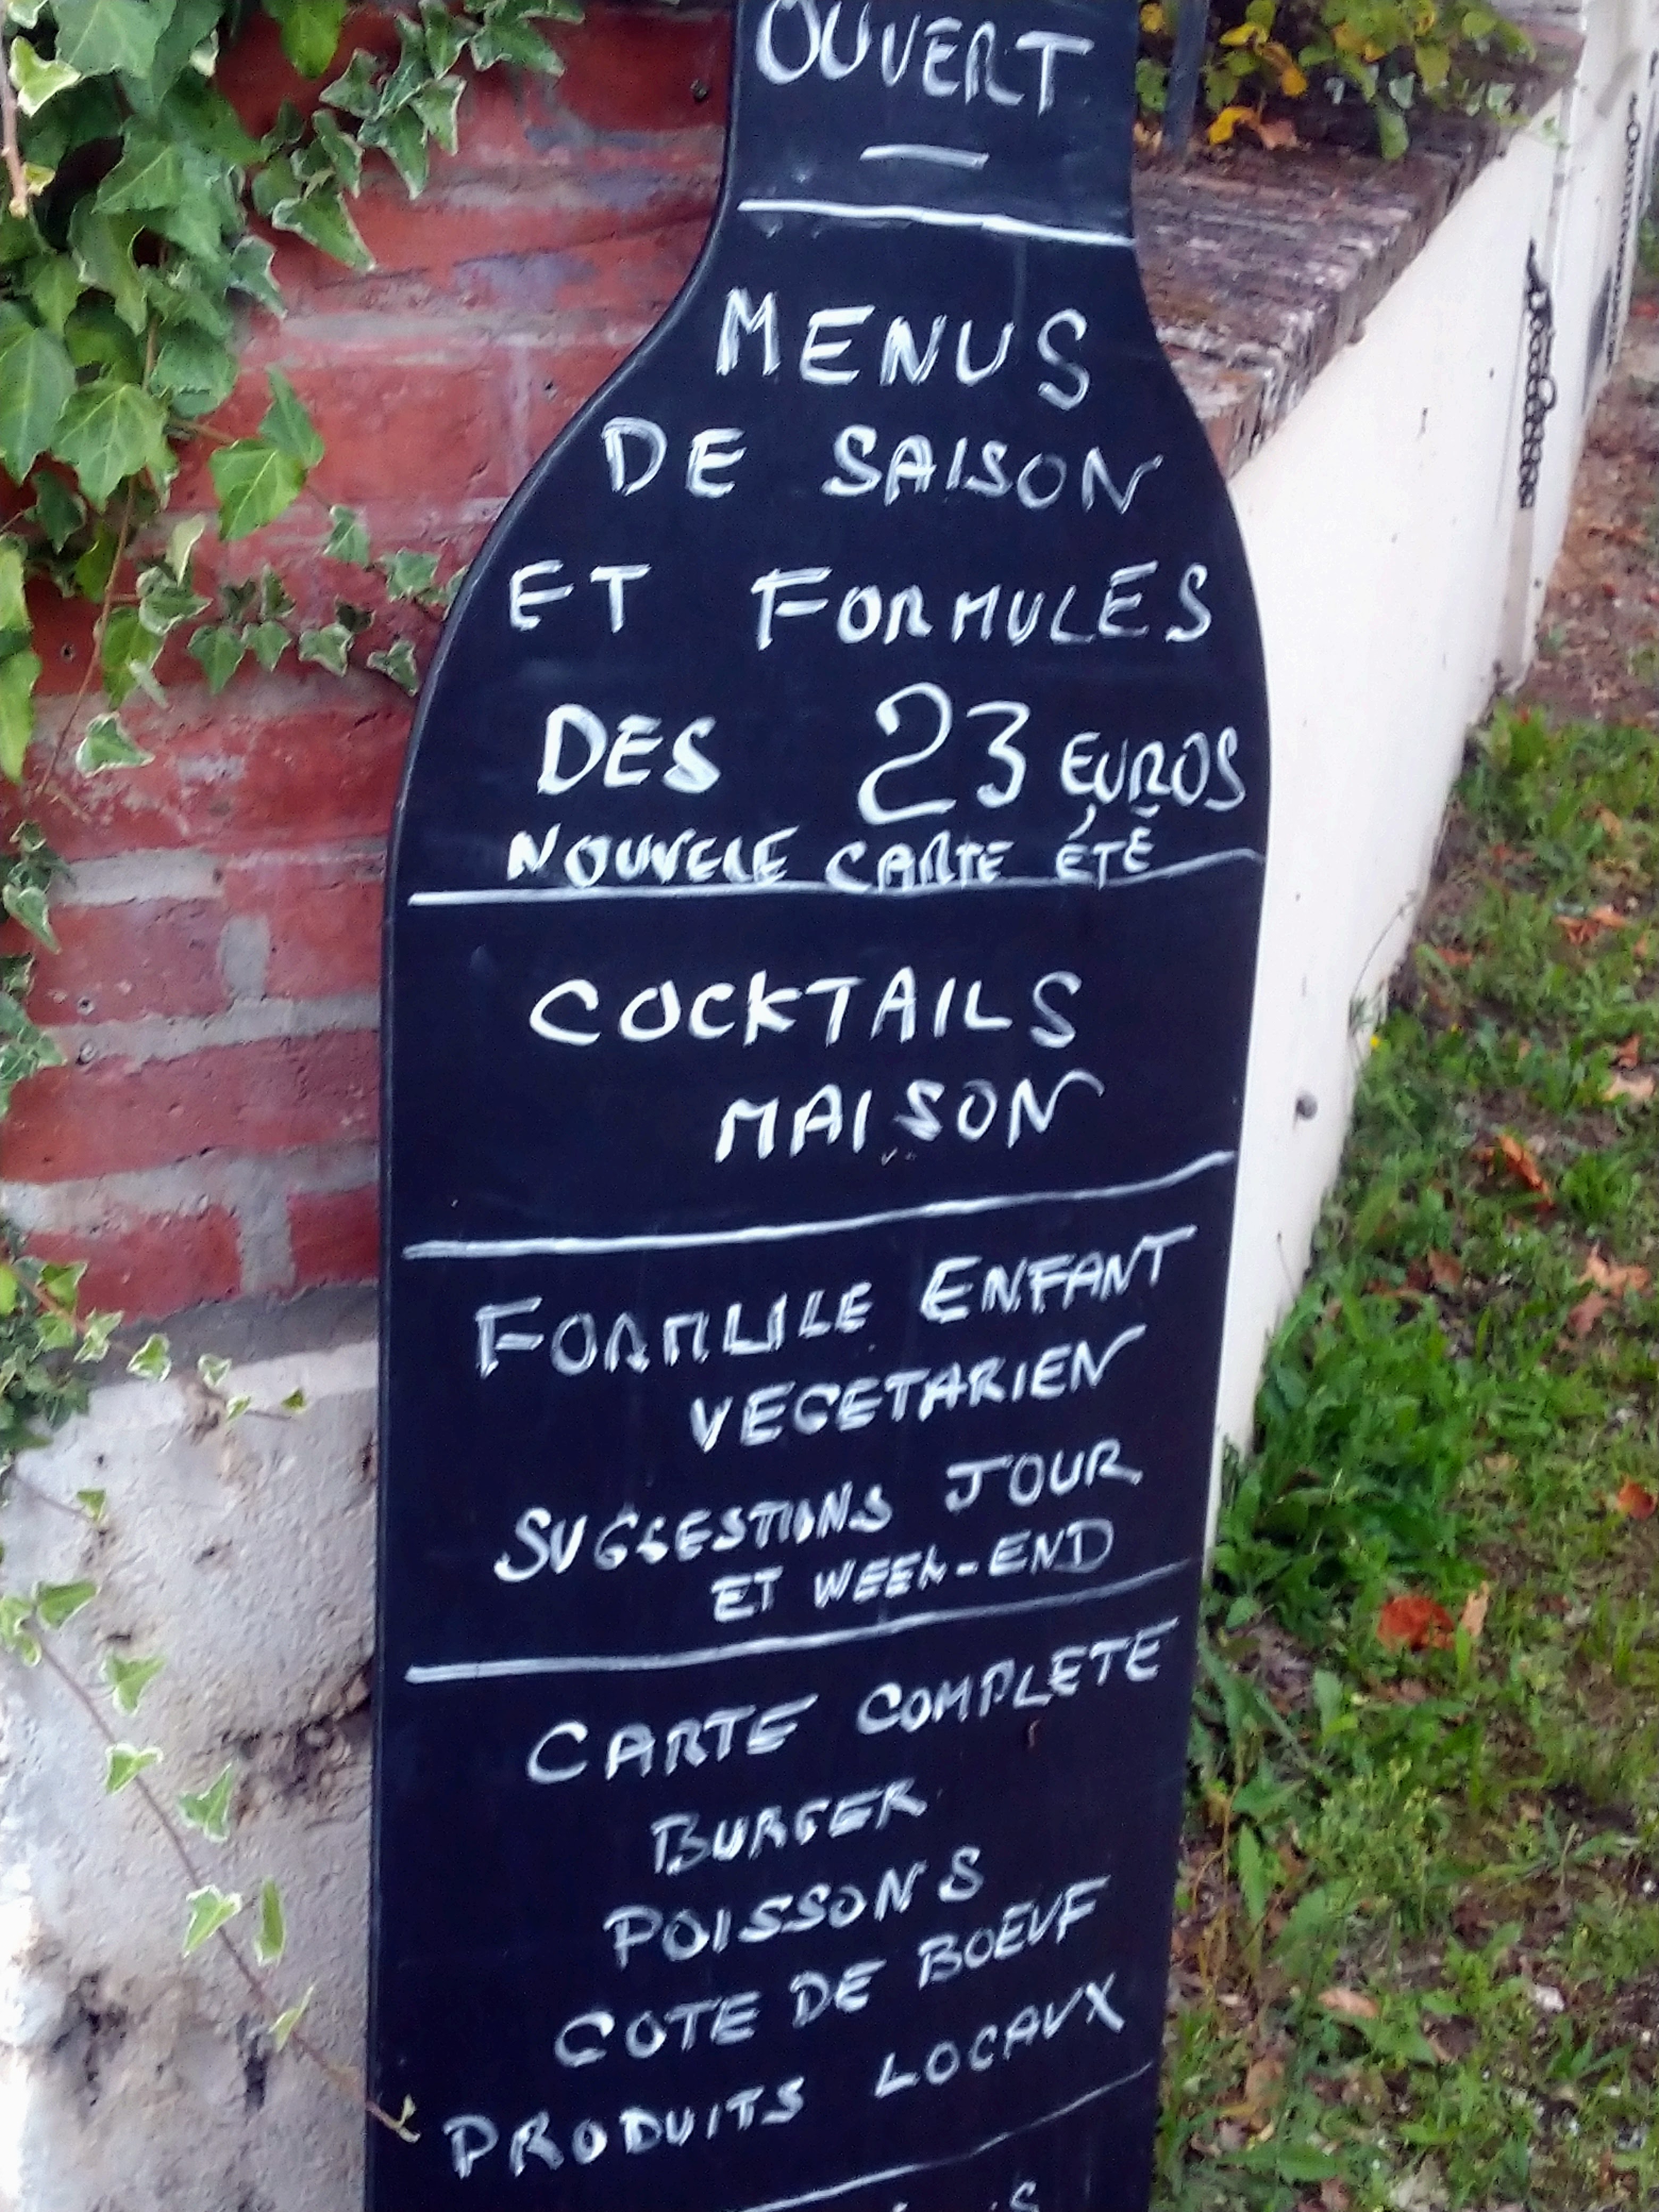 OUVERT
MENUS
DE SAISON
ET FORMULES
DES 23 EUROS
NOUVELE CARTE ÉTÉ
COCKTAILS
MAISON
FORMULE ENFANT
VEGETARIEN
SUGGESTIONS JOUR
ET WEEK-END
CARTE COMPLETE
BURGER
POISSONS
COTE DE BOEUF
PRODUITS LOCAUX